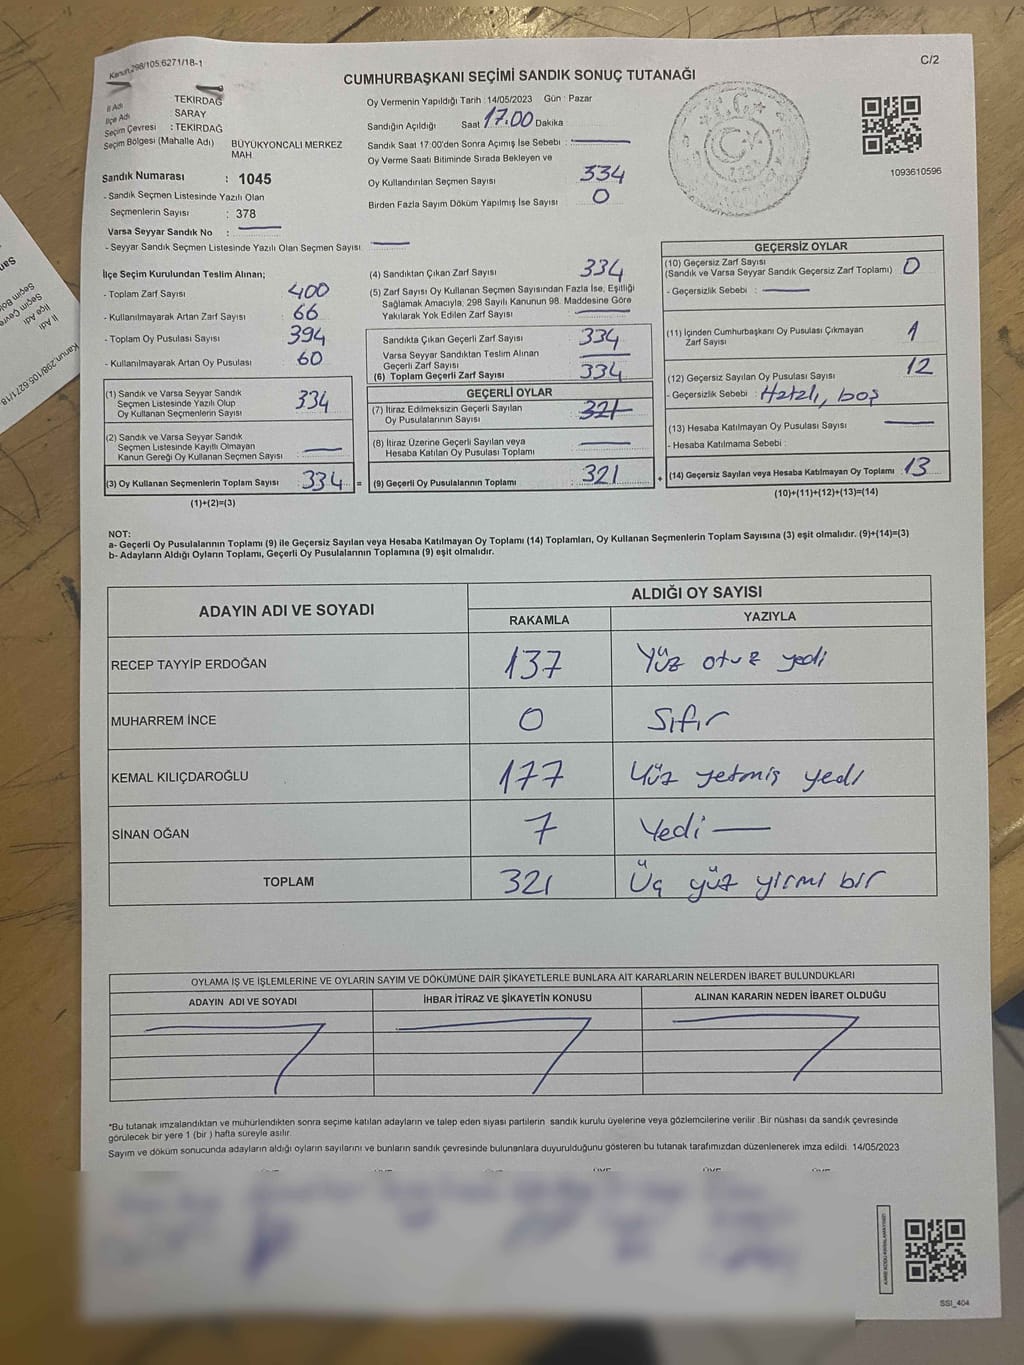 Kanun,298/105.6271/18-1
C/2
CUMHURBAŞKANI SEÇİMİ SANDIK SONUÇ TUTANAĞI
İl Adı TEKİRDAĞ
İlçe Adı SARAY
Seçim Çevresi : TEKİRDAĞ
Seçim Bölgesi (Mahalle Adı) BÜYÜKYONCALI MERKEZ
MAH.
Sandık Numarası : 1045
- Sandık Seçmen Listesinde Yazılı Olan
Seçmenlerin Sayısı : 378
Varsa Seyyar Sandık No :
- Seyyar Sandık Seçmen Listesinde Yazılı Olan Seçmen Sayısı
Oy Vermenin Yapıldığı Tarih :14/05/2023 Gün : Pazar
Sandığın Açıldığı Saat 17.00 Dakika
Sandık Saat 17:00'den Sonra Açımış İse Sebebi :
Oy Verme Saati Bitiminde Sırada Bekleyen ve
Oy Kullandırılan Seçmen Sayısı 334
Birden Fazla Sayım Döküm Yapılmış İse Sayısı 0
T.C.
1093610596
İlçe Seçim Kurulundan Teslim Alınan;
- Toplam Zarf Sayısı 400
- Kullanılmayarak Artan Zarf Sayısı 66
- Toplam Oy Pusulası Sayısı 394
- Kullanılmayarak Artan Oy Pusulası 60
(1) Sandık ve Varsa Seyyar Sandık
Seçmen Listesinde Yazılı Olup
Oy Kullanan Seçmenlerin Sayısı 334
(2) Sandık ve Varsa Seyyar Sandık
Seçmen Listesinde Kayıtlı Olmayan
Kanun Gereği Oy Kullanan Seçmen Sayısı
(3) Oy Kullanan Seçmenlerin Toplam Sayısı 334 =
(1)+(2)=(3)
(4) Sandıktan Çıkan Zarf Sayısı 334
(5) Zarf Sayısı Oy Kullanan Seçmen Sayısından Fazla İse, Eşitliği
Sağlamak Amacıyla, 298 Sayılı Kanunun 98. Maddesine Göre
Yakılarak Yok Edilen Zarf Sayısı
Sandıkta Çıkan Geçerli Zarf Sayısı 334
Varsa Seyyar Sandıktan Teslim Alınan
Geçerli Zarf Sayısı
(6) Toplam Geçerli Zarf Sayısı 334
GEÇERLİ OYLAR
(7) İtiraz Edilmeksizin Geçerli Sayılan
Oy Pusulalarının Sayısı 321
(8) İtiraz Üzerine Geçerli Sayılan veya
Hesaba Katılan Oy Pusulası Toplamı
(9) Geçerli Oy Pusulalarının Toplamı : 321 +
GEÇERSİZ OYLAR
(10) Geçersiz Zarf Sayısı
(Sandık ve Varsa Seyyar Sandık Geçersiz Zarf Toplamı) 0
- Geçersizlik Sebebi :
(11) İçinden Cumhurbaşkanı Oy Pusulası Çıkmayan
Zarf Sayısı 1
(12) Geçersiz Sayılan Oy Pusulası Sayısı 12
- Geçersizlik Sebebi : Hatalı, boş
(13) Hesaba Katılmayan Oy Pusulası Sayısı
- Hesaba Katılmama Sebebi :
(14) Geçersiz Sayılan veya Hesaba Katılmayan Oy Toplamı 13
(10)+(11)+(12)+(13)=(14)
NOT:
a- Geçerli Oy Pusulalarının Toplamı (9) ile Geçersiz Sayılan veya Hesaba Katılmayan Oy Toplamı (14) Toplamları, Oy Kullanan Seçmenlerin Toplam Sayısına (3) eşit olmalıdır. (9)+(14)=(3)
b- Adayların Aldığı Oyların Toplamı, Geçerli Oy Pusulalarının Toplamına (9) eşit olmalıdır.
ADAYIN ADI VE SOYADI
ALDIĞI OY SAYISI
RAKAMLA YAZIYLA
RECEP TAYYİP ERDOĞAN 137 Yüz otuz yedi
MUHARREM İNCE 0 Sıfır
KEMAL KILIÇDAROĞLU 177 Yüz yetmiş yedi
SİNAN OĞAN 7 Yedi
TOPLAM 321 Üç yüz yirmi bir
OYLAMA İŞ VE İŞLEMLERİNE VE OYLARIN SAYIM VE DÖKÜMÜNE DAİR ŞİKAYETLERLE BUNLARA AİT KARARLARIN NELERDEN İBARET BULUNDUKLARI
ADAYIN ADI VE SOYADI İHBAR İTİRAZ VE ŞİKAYETİN KONUSU ALINAN KARARIN NEDEN İBARET OLDUĞU
*Bu tutanak imzalandıktan ve mühürlendikten sonra seçime katılan adayların ve talep eden siyasi partilerin sandık kurulu üyelerine veya gözlemcilerine verilir. Bir nüshası da sandık çevresinde
görülecek bir yere 1 (bir ) hafta süreyle asılır.
Sayım ve döküm sonucunda adayların aldığı oyların sayılarını ve bunların sandık çevresinde bulunanlara duyurulduğunu gösteren bu tutanak tarafımızdan düzenlenerek imza edildi. 14/05/2023
SSI_404